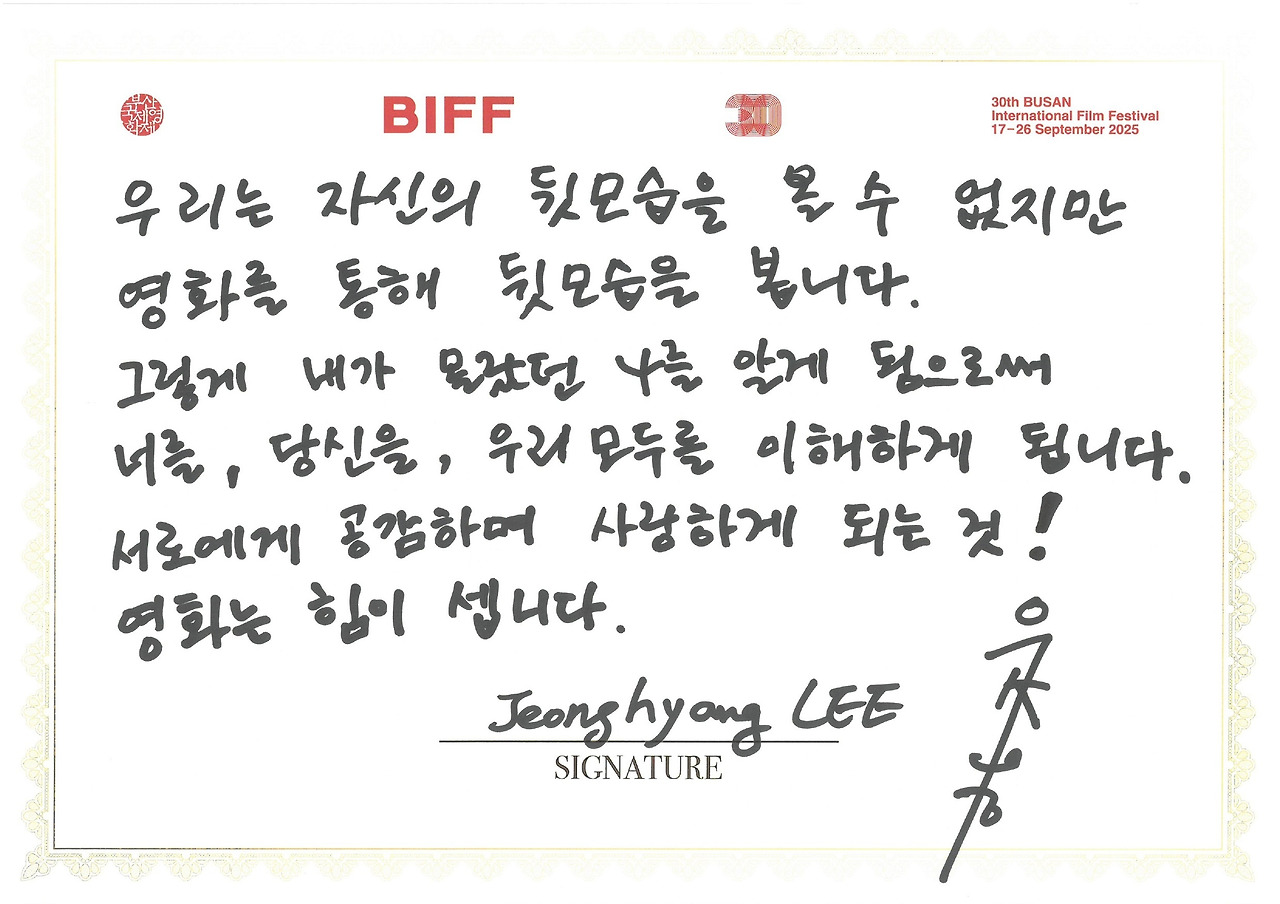 부산국제영화제
BIFF
30
30th BUSAN
International Film Festival
17–26 September 2025
우리는 자신의 뒷모습을 볼 수 없지만
영화를 통해 뒷모습을 봅니다.
그렇게 내가 몰랐던 나를 알게 됨으로써
너를, 당신을, 우리 모두를 이해하게 됩니다.
서로에게 공감하며 사랑하게 되는 것!
영화는 힘이 셉니다.
Jeonghyang LEE
SIGNATURE